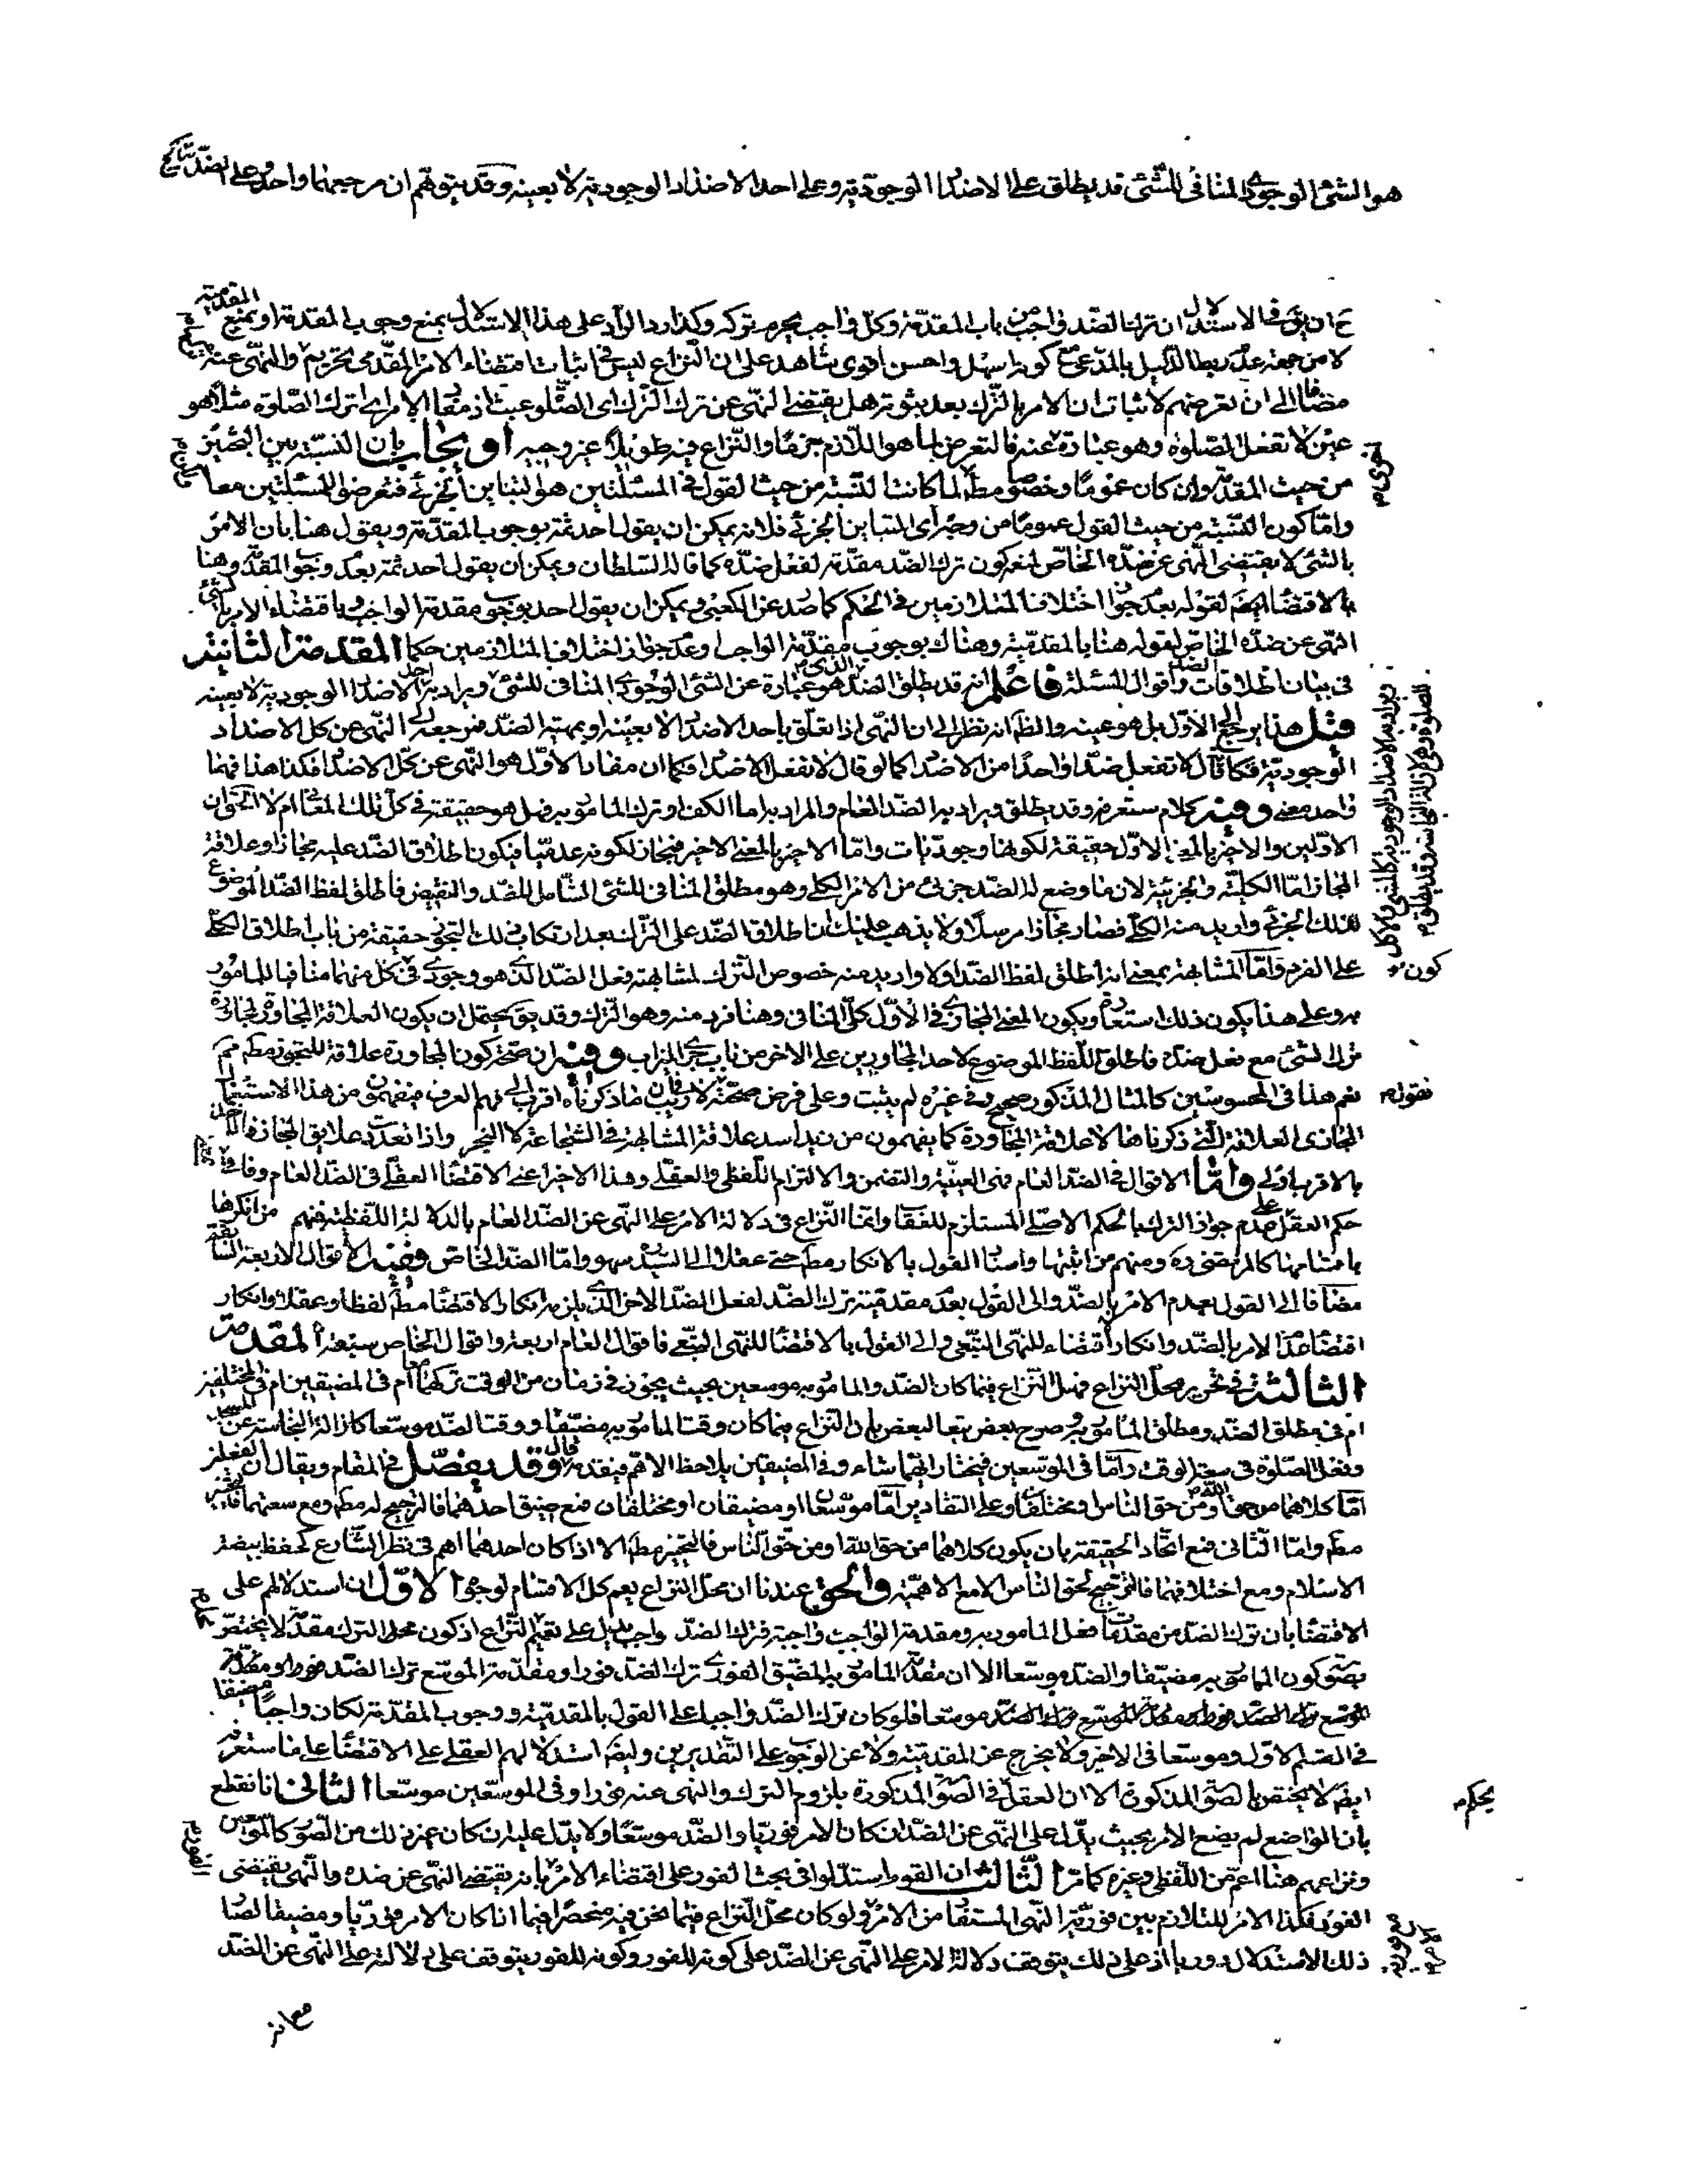 هو الشئ الوجودي المنافى للشئ قد يطلق على الاضداد الوجودية وعلى احد الاضداد الوجودية لا بعينه وقد يتوهم ان مرجعهما واحد وعلى الضد
ان يق فى الاستدلال ان ترك الضد واجب من باب المقدمة وكل واجب يحرم تركه وكذا رد الراد على هذا الاستدلال بمنع وجوب المقدمة او بمنع المقدمية
لا من جهة عدم ربط الدليل بالمدعى مع كونه اسهل واحسن اقوى شاهد على ان النزاع ليس فى اثبات اقتضاء الامر المقدمى تحريم والنهى عنه
مضافا الى ان تعرضهم لاثبات ان الامر بالترك بعد ثبوته هل يقتضى النهى عن ترك الترك اى الصلوة عبث اذ معنى الامر اى ترك الصلوة مثلا هو
عين لا تفعل الصلوة وهو عبارة عنه فالتعرض لما هو اللازم جزما والنزاع فيه طويلا غير وجيه او يجاب بان النسبة بين الضدين
من حيث المقدمة وان كان عموما وخصوصا مطلقا لما كانت النسبة من حيث القول فى المسئلتين هو التباين الجزئى فتعرضوا للمسئلتين معا
واما كون النسبة من حيث القول عموما من وجه اى التباين الجزئى فلانه يمكن ان يقول احد ثمة بوجوب المقدمة ويقول هنا بان الامر
بالشئ لا يقتضى النهى عن ضده الخاص لمنعه كون ترك الضد مقدمة لفعل ضده كما قاله السلطان ويمكن ان يقول احد ثمة بعدم وجوب المقدمة وهنا
بالاقتضاء ايضا لقوله بعدم جواز اختلاف المتلازمين فى الحكم كما صدر عن الكعبى ويمكن ان يقول احد بوجوب مقدمة الواجب وباقتضاء الامر بالشئ
النهى عن ضده الخاص لقوله هنا بالمقدمية وهناك بوجوب مقدمة الواجب وعدم جواز اختلاف المتلازمين حكما المقدمة الثانية
فى بيان اطلاقات الضد واقوال المسئلة فاعلم انه قد يطلق الضد الذى هو عبارة عن الشئ الوجودى المنافى للشئ ويراد به احد الاضداد الوجودية لا بعينه
قيل هذا يرجع الى الاول بل هو عينه والظ انه نظر الى ان النهى اذا تعلق باحد الاضداد لا بعينه او بمهية الضد فمرجعه الى النهى عن كل الاضداد
الوجودية فكما قال لا تفعل ضدا واحدا من الاضداد كما لو قال لا تفعل الاضداد فكما ان مفاد الاول هو النهى عن كل الاضداد فكذا هذا فهما
واحد معنى وفيه كلام ستعرفه وقد يطلق ويراد به الضد العام والمراد به اما الكف او ترك المامور به فهل هو حقيقة فى كل تلك المعانى ام لا الحق ان
الاولين والاخير بالمعنى الاول حقيقة لكونها وجوديات واما الاخير بالمعنى الاخير فمجاز لكونه عدميا فيكون اطلاق الضد عليه مجازا وعلاقة
المجاز اما الكلية والجزئية لان ما وضع له الضد جزئى من الامر الكلى وهو مطلق المنافى للشئ الشامل للضد والنقيض فاطلق لفظ الضد الموضوع
لذلك الجزئى واريد منه الكلى فصار مجازا مرسلا ولا يذهب عليك ان اطلاق الضد على الترك بعد ارتكاب ذلك التجوز حقيقة من باب اطلاق الكلى
على الفرد واما المشابهة بمعنى انه اطلق لفظ الضد اولا واريد منه خصوص الترك لمشابهته فعل الضد الذى هو وجودى فى كون كل منهما منافيا للمامور
به وعلى هذا يكون ذلك استعارة ويكون المعنى المجازى فى الاول كلى المنافى وهنا فرد منه وهو الترك وقد يق يحتمل ان يكون العلاقة المجاورة لمجاورة
ترك الشئ مع فعل ضده فاطلق اللفظ الموضوع لاحد المجاورين على الاخر من باب جرى الميزاب وفيه ان صحة كون المجاورة علاقة للتجوز مطلقا مم
نعم هذا فى المحسوسين كالمثال المذكور صحيح وفى غيره لم يثبت وعلى فرض صحته نقول لا ريب فى ان ما ذكرناه اقرب الى فهم العرف فيفهمون من هذا الاستعمال
المجازى العلاقة التى ذكرناها لا علاقة المجاورة كما يفهمون من زيد اسد علاقة المشابهة فى الشجاعة لا البخر واذا تعدد علائق المجاز فالحمل
بالاقرب اولى واما الاقوال فى الضد العام فهى العينية والتضمن والالتزام اللفظى والعقلى وهذا الاخير اعنى الاقتضاء العقلى فى الضد العام وفاقى
حكم العقل على عدم جواز الترك بالحكم الاصلى المستلزم للعقاب وانما النزاع فى دلالة الامر على النهى عن الضد العام بالدلالة اللفظية فمنهم من انكرها
باقسامها كالمرتضى ره ومنهم من اثبتها واسناد القول بالانكار مطلقا حتى عقلا الى السيد سهو واما الضد الخاص ففيه الاقوال الاربعة السابقة
مضافا الى القول بعدم الامر بالضد والى القول بعدم مقدمية ترك الضد لفعل الضد الاخر الذى يلزمه انكار الاقتضاء مطلقا لفظا وعقلا وانكار
اقتضاء عدم الامر بالضد وانكار اقتضاء للنهى التبعى والى القول بالاقتضاء للنهى التبعى فاقوال العام اربعة واقوال الخاص سبعة المقدمة
الثالثة فى تحرير محل النزاع فهل النزاع فيما كان الضد والمامور به موسعين بحيث يجوز فى زمان من الوقت تركهما معا ام فى المضيقين ام فى المختلفين
ام فى مطلق الضد ومطلق المامور به صرح بعض تبعا لبعض بان النزاع فيما كان وقت المامور به مضيقا ووقت الضد موسعا كازالة النجاسة عن المسجد
وفعل الصلوة فى سعة الوقت واما فى الموسعين فيختار ايهما شاء وفى المضيقين يلاحظ الاهم فيقدمه قال وقد يفصل فى المقام ويقال ان الفعلين
اما كلاهما من حق الله او من حق الناس او مختلفان وعلى التقادير اما موسعان او مضيقان او مختلفان فمع ضيق احدهما فالترجيح له مطلقا ومع سعتهما فالتخيير
مطلقا واما الثانى فمع اتحاد الحقيقة بان يكون كلاهما من حق الله او من حق الناس فالتخيير مطلقا الا اذا كان احدهما اهم فى نظر الشارع كحفظ بيضة
الاسلام ومع اختلافهما فالترجيح لحق الناس الا مع الاهمية والحق عندنا ان محل النزاع يعم كل الاقسام لوجوه الاول ان استدلالهم على
الاقتضاء بان ترك الضد من مقدمات فعل المامور به ومقدمة الواجب واجبة فترك الضد واجب دليل على تعميم النزاع اذ كون محل الترك مقدمة لا يختص
بصورة كون المامور به مضيقا والضد موسعا الا ان مقدمة المامور به المضيق الفورى ترك الضد فورا ومقدمة الموسع ترك الضد
موسعا فلو كان ترك الضد واجبا على القول بالمقدمية ووجوب المقدمة لكان واجبا مضيقا
فى القسم الاول وموسعا فى الاخير ولا يخرج عن المقدمية ولا عن الوجوب على التقديرين وايضا استدلالهم العقلى على الاقتضاء على ما ستعرفه
ايضا لا يختص بالصورة المذكورة الا ان العقل يحكم فى الصورة المذكورة بلزوم الترك والنهى عنه فورا وفى الموسعين موسعا الثانى انا نقطع
بان الواضع لم يضع الامر بحيث يدل على النهى عن الضد ان كان الامر فوريا والضد موسعا ولا يدل عليه ان كان غير ذلك من الصور كالموسعين
ونزاعهم هنا اعم من اللفظى وغيره كما مر الثالث ان القوم استدلوا فى بحث الفور على اقتضاء الامر بانه يقتضى النهى عن ضده والنهى يقتضى
الفور فكذا الامر للتلازم بين فورية النهى المستفاد من الامر ولو كان محل النزاع فيما نحن فيه منحصرا فيما اذا كان الامر فوريا ومضيقا لصار
ذلك الاستدلال دوريا اذ على ذلك يتوقف دلالة الامر على النهى عن الضد على كونه للفور وكونه للفور يتوقف على دلالته على النهى عن الضد